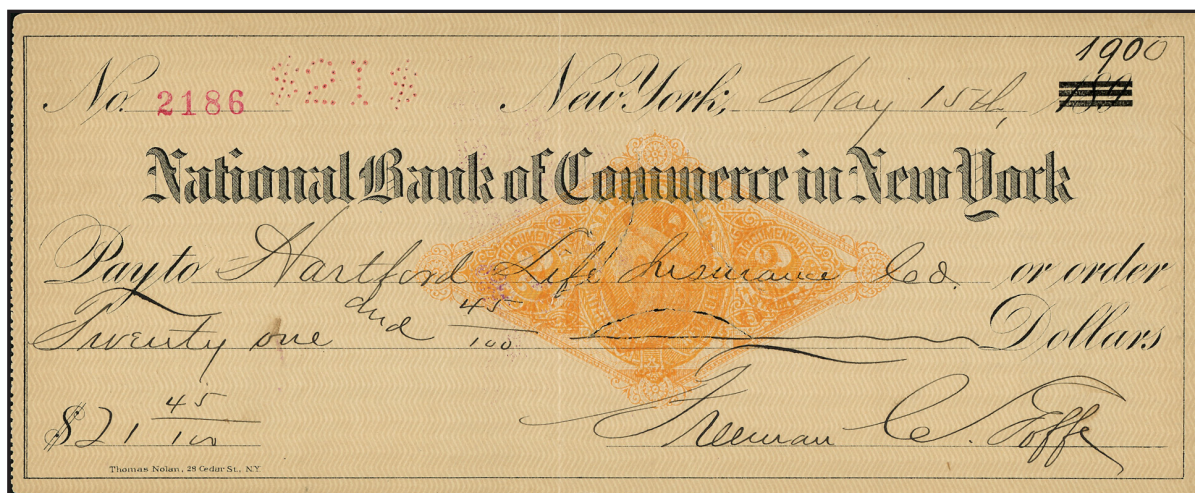 1900
No. 2186 $21$ New York, May 15th,
National Bank of Commerce in New York
Pay to Hartford Life Insurance Co. or order
Twenty one and 45/100 Dollars
$21 45/100 Freeman C.
Thomas Nolan, 28 Cedar St., N.Y.